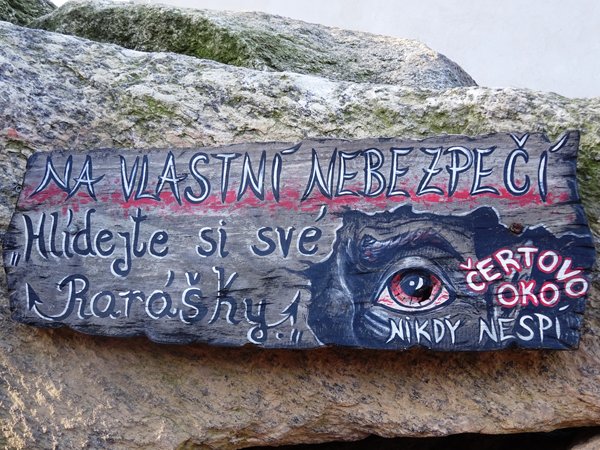 NA VLASTNÍ NEBEZPEČÍ
„Hlídejte si své
Rarášky!"
ČERTOVO
OKO
NIKDY NESPÍ